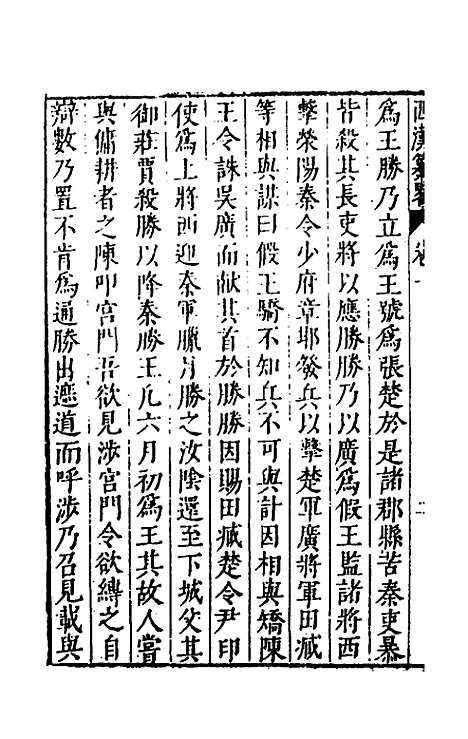 西漢纂畧 卷一 二
爲王勝乃立爲王號爲張楚於是諸郡縣苦秦吏暴
皆殺其長吏將以應勝勝乃以廣爲假王監諸將西
擊滎陽秦令少府章耶發兵以擊楚軍廣將軍田臧
等相與謀曰假王驕不知兵不可與計因相與矯陳
王令誅吳廣而献其首於勝勝因賜田臧楚令尹印
使爲上將西迎秦軍臘月勝之汝陰還至下城父其
御莊賈殺勝以降秦勝王凡六月初爲王其故人嘗
與傭耕者之陳叩宫門吾欲見涉宫門令欲縛之自
辯數乃置不肯爲通勝出遮道而呼涉乃召見載與